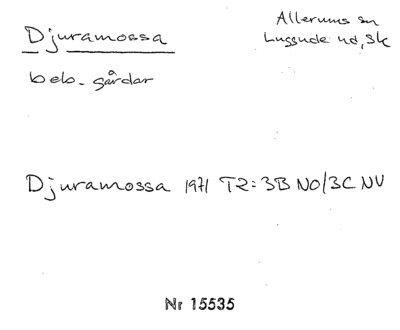 Djuramossa
Allerums sn
Luggude hd, Sk
beb. gårdar
Djuramossa 1971 T2:3B NO/3C NV
Nr 15535